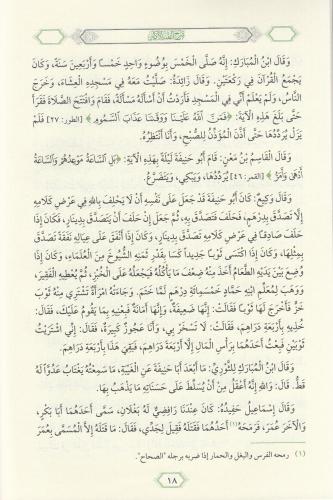 شرح الفقه الأكبر
وَقَالَ ابْنُ المُبَارَكِ: إِنَّهُ صَلَّى الْخَمْسَ بِوُضُوءٍ وَاحِدٍ خَمْساً وَأَرْبَعِينَ سَنَةً، وَكَانَ
يَجْمَعُ الْقُرْآنَ فِي رَكْعَتَيْنِ. وَقَالَ زَائِدَةُ: صَلَّيْتُ مَعَهُ فِي مَسْجِدِهِ الْعِشَاءَ، وَخَرَجَ
النَّاسُ، وَلَمْ يَعْلَمْ أَنِّي فِي الْمَسْجِدِ فَأَرَدْتُ أَنْ أَسْأَلَهُ مَسْأَلَةً، فَقَامَ وَافْتَتَحَ الصَّلَاةَ فَقَرَأَ
حَتَّى بَلَغَ هَذِهِ الْآيَةَ: ﴿فَمَنَّ اللَّهُ عَلَيْنَا وَوَقَانَا عَذَابَ السَّمُومِ﴾ [الطور: ٢٧] فَلَمْ
يَزَلْ يُرَدِّدُهَا حَتَّى أَذَّنَ الْمُؤَذِّنُ لِلصُّبْحِ، وَأَنَا أَنْتَظِرُهُ.
وَقَالَ الْقَاسِمُ بْنُ مَعْنٍ: قَامَ أَبُو حَنِيفَةَ لَيْلَةً بِهَذِهِ الْآيَةِ: ﴿بَلِ السَّاعَةُ مَوْعِدُهُمْ وَالسَّاعَةُ
أَدْهَى وَأَمَرُّ﴾ [القمر: ٤٦] يُرَدِّدُهَا، وَيَبْكِي، وَيَتَضَرَّعُ.
وَقَالَ وَكِيعٌ: كَانَ أَبُو حَنِيفَةَ قَدْ جَعَلَ عَلَى نَفْسِهِ أَنْ لَا يَحْلِفَ بِاللهِ فِي عَرْضِ كَلَامِهِ
إِلَّا تَصَدَّقَ بِدِرْهَمٍ، فَحَلَفَ فَتَصَدَّقَ بِهِ، ثُمَّ جَعَلَ إِنْ حَلَفَ أَنْ يَتَصَدَّقَ بِدِينَارٍ، فَكَانَ إِذَا
حَلَفَ صَادِقاً فِي عَرْضِ كَلَامِهِ تَصَدَّقَ بِدِينَارٍ، وَكَانَ إِذَا أَنْفَقَ عَلَى عِيَالِهِ نَفَقَةً تَصَدَّقَ
بِمِثْلِهَا، وَكَانَ إِذَا اكْتَسَى ثَوْباً جَدِيداً كَسَا بِقَدْرِ ثَمَنِهِ الشُّيُوخَ مِنَ الْعُلَمَاءِ، وَكَانَ إِذَا
وُضِعَ بَيْنَ يَدَيْهِ الطَّعَامُ أَخَذَ مِنْهُ ضِعْفَ مَا يَأْكُلُهُ فَيَجْعَلُهُ عَلَى الْخُبْزِ، ثُمَّ يُعْطِيهِ الْفَقِيرَ،
وَوَهَبَ لِمُعَلِّمِ ابْنِهِ حَمَّادٍ خَمْسَمِائَةِ دِرْهَمٍ لَمَّا خَتَمَ. وَجَاءَتْهُ امْرَأَةٌ تَشْتَرِي مِنْهُ ثَوْبَ
خَزٍّ فَأَخْرَجَ لَهَا ثَوْباً فَقَالَتْ: إِنَّهَا ضَعِيفَةٌ، وَإِنَّهَا أَمَانَةٌ فَبِعْنِيهِ بِمَا يَقُومُ عَلَيْكَ، فَقَالَ:
خُذِيهِ بِأَرْبَعَةِ دَرَاهِمَ، فَقَالَتْ: لَا تَسْخَرْ بِي، وَأَنَا عَجُوزٌ كَبِيرَةٌ، فَقَالَ: إِنِّي اشْتَرَيْتُ
ثَوْبَيْنِ فَبِعْتُ أَحَدَهُمَا بِرَأْسِ الْمَالِ إِلَّا أَرْبَعَةَ دَرَاهِمَ، فَبَقِيَ هَذَا بِأَرْبَعَةِ دَرَاهِمَ.
وَقَالَ ابْنُ الْمُبَارَكِ لِلثَّوْرِيِّ: مَا أَبْعَدَ أَبَا حَنِيفَةَ عَنِ الْغِيبَةِ، مَا سَمِعْتُهُ يَغْتَابُ عَدُوًّا لَهُ
قَطُّ. قَالَ: وَاللهِ إِنَّهُ أَعْقَلُ مِنْ أَنْ يُسَلِّطَ عَلَى حَسَنَاتِهِ مَا يَذْهَبُ بِهَا.
وَقَالَ إِسْمَاعِيلُ حَفِيدُهُ: كَانَ عِنْدَنَا رَافِضِيٌّ لَهُ بَغْلَانِ، سَمَّى أَحَدَهُمَا أَبَا بَكْرٍ،
وَالْآخَرَ عُمَرَ، فَرَمَحَهُ(١) أَحَدُهُمَا فَقَتَلَهُ فَقِيلَ لِجَدِّي، فَقَالَ: مَا قَتَلَهُ إِلَّا الْمُسَمَّى بِعُمَرَ
(١) رمحه الفرس والبغل والحمار إذا ضربه برجله "الصحاح".
١٨